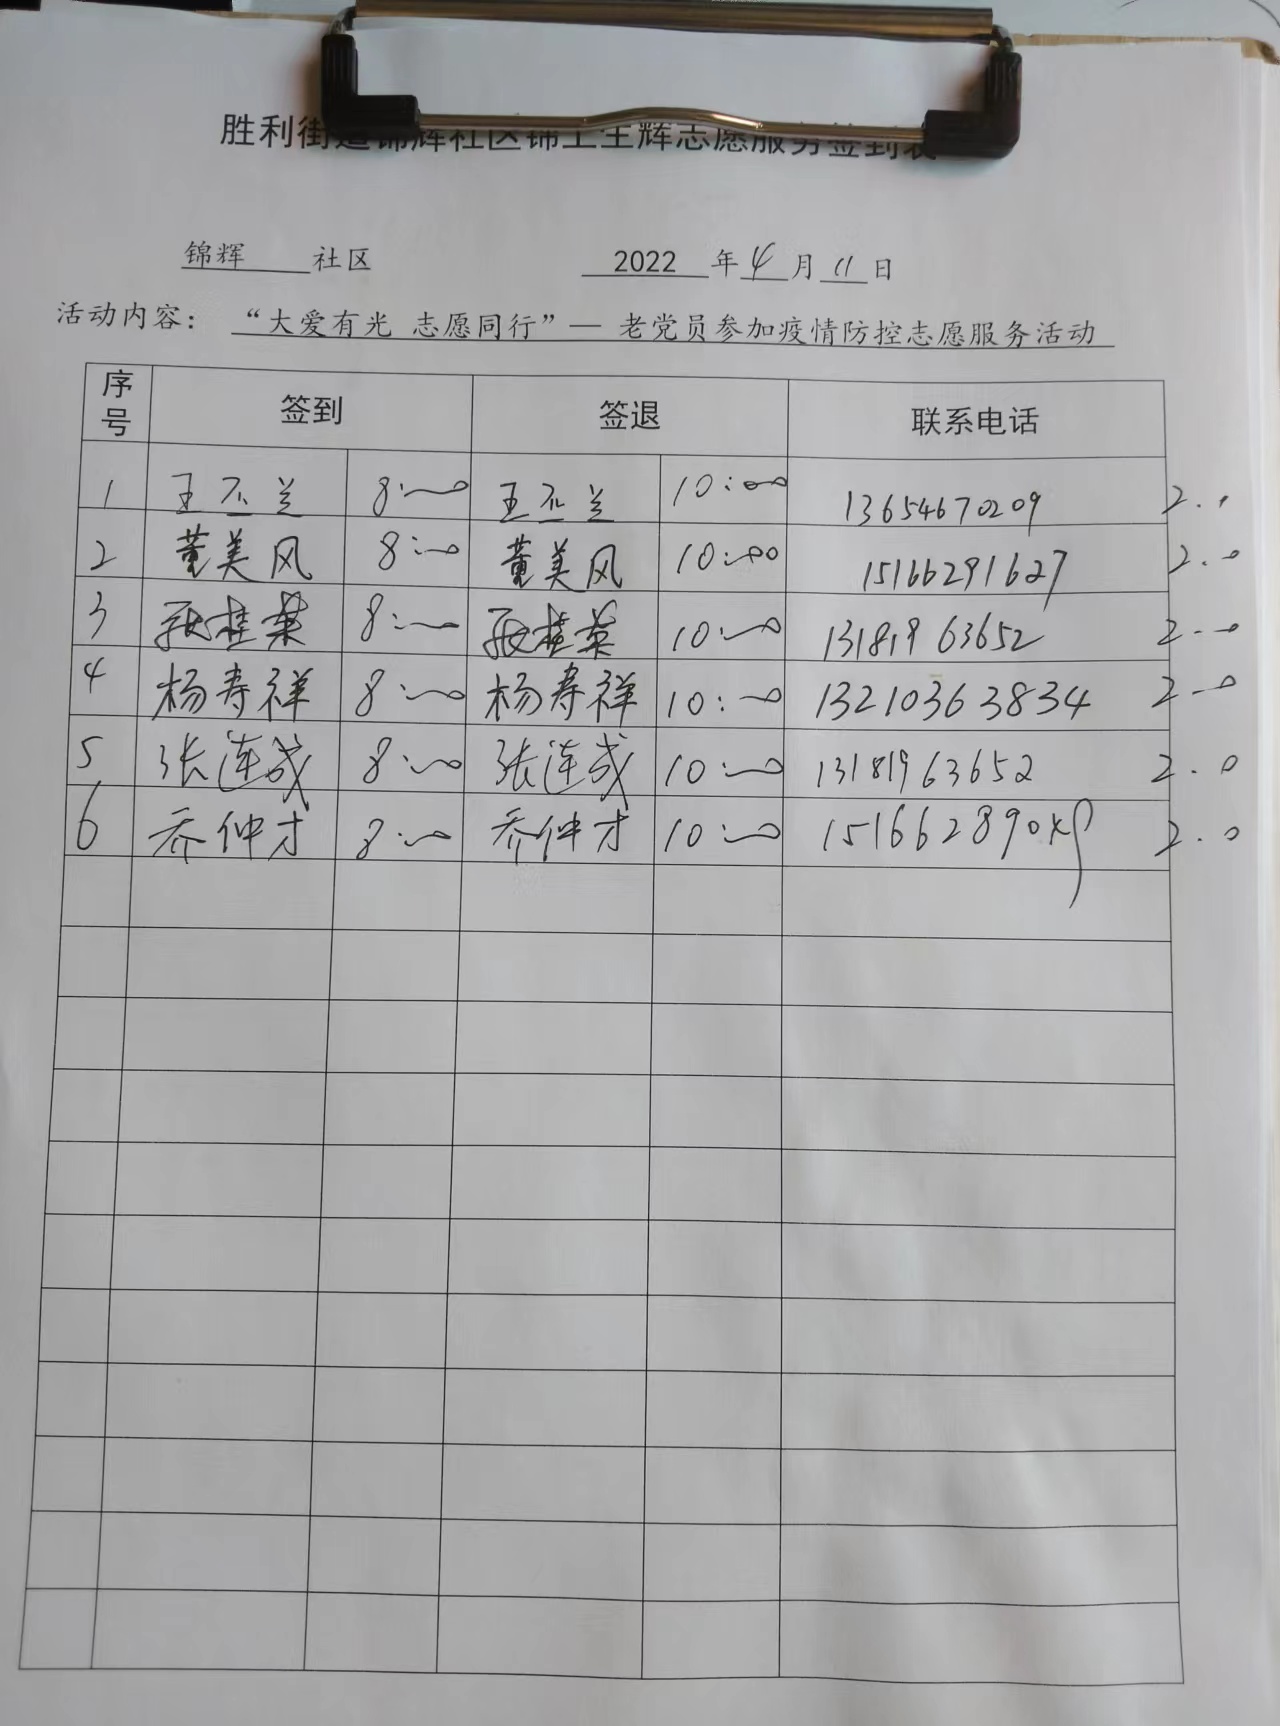 胜利街道锦辉社区锦上生辉志愿服务签到表
锦辉 社区 2022 年 4 月 11 日
活动内容： “大爱有光 志愿同行”— 老党员参加疫情防控志愿服务活动
序号 签到 签退 联系电话
1 王丕兰 8:00 王丕兰 10:00 13654670209 2.0
2 董美风 8:00 董美风 10:00 15166291627 2.0
3 桂英 8:00 桂英 10:00 13181963652 2.0
4 杨寿祥 8:00 杨寿祥 10:00 13210363834 2.0
5 张连成 8:00 张连成 10:00 13181963652 2.0
6 乔仲才 8:00 乔仲才 10:00 2.0